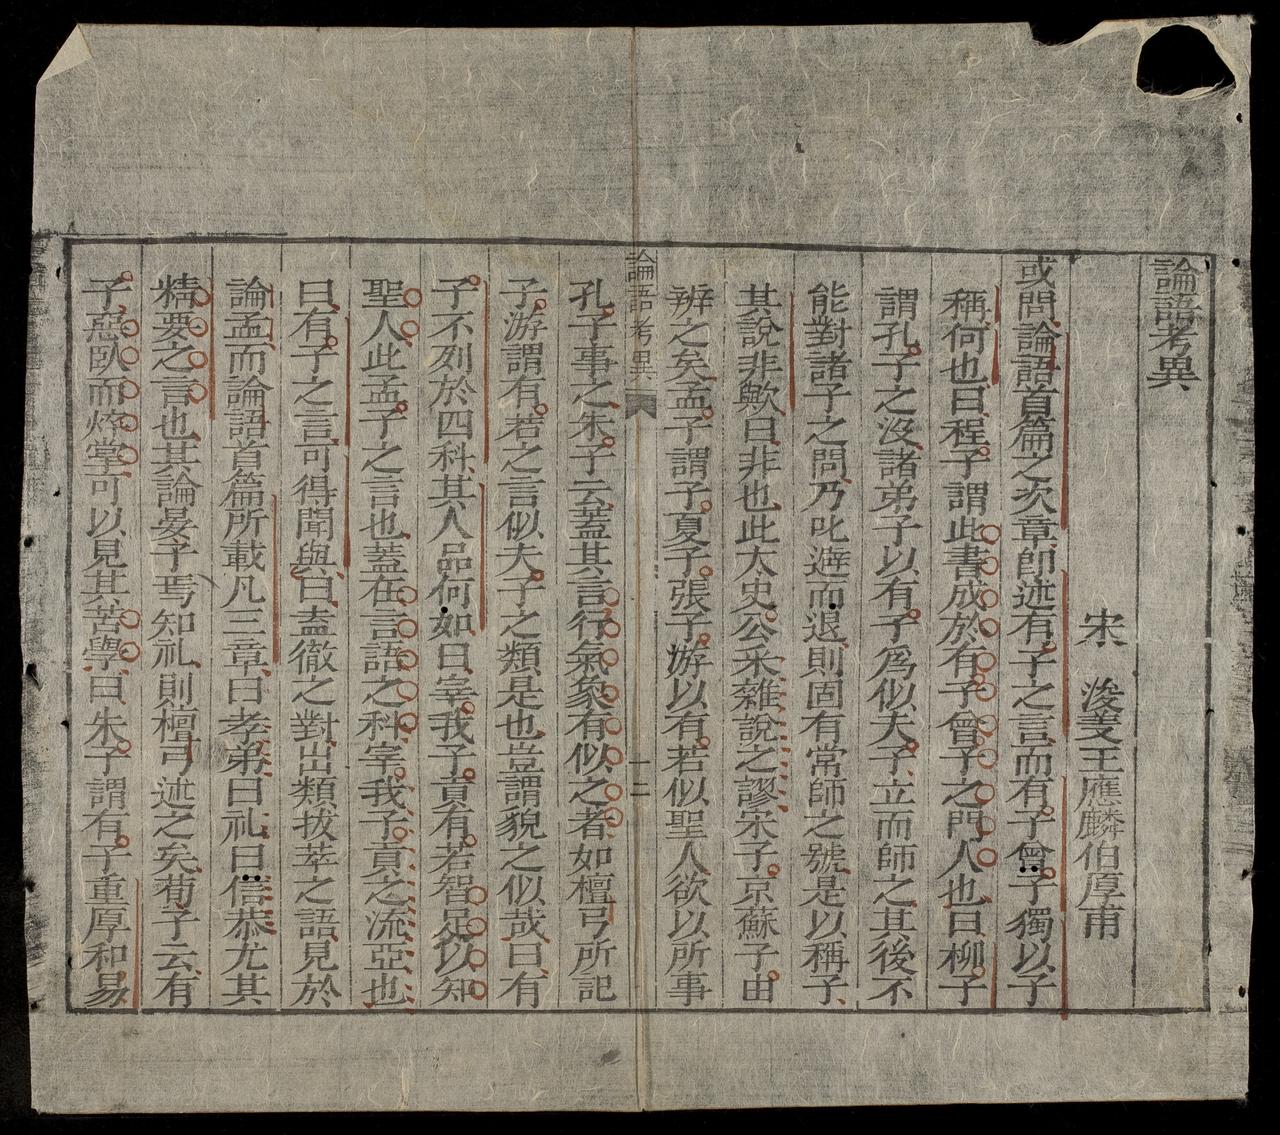 論語考異
宋 浚義王應麟伯厚甫
或問論語首篇之次章卽述有子之言而有子曾子獨以子
稱何也曰程子謂此書成於有子曾子之門人也曰柳子
謂孔子之沒諸弟子以有子爲似夫子立而師之其後不
能對諸子之問乃叱避而退則固有常師之號是以稱子
其說非歟曰非也此太史公采雜說之謬宋子京蘇子由
辨之矣孟子謂子夏子張子游以有若似聖人欲以所事
論語考異
十二
孔子事之朱子云蓋其言行氣象有似之者如檀弓所記
子游謂有若之言似夫子之類是也豈謂貌之似哉曰有
子不列於四科其人品何如曰宰我子貢有若智足以知
聖人此孟子之言也蓋在言語之科宰我子貢之流亞也
曰有子之言可得聞與曰盍徹之對出類拔萃之語見於
論孟而論語首篇所載凡三章曰孝弟曰礼曰信恭尤其
精要之言也其論晏子焉知礼則檀弓述之矣荀子云有
子惡臥而焠掌可以見其苦學曰朱子謂有子重厚和易